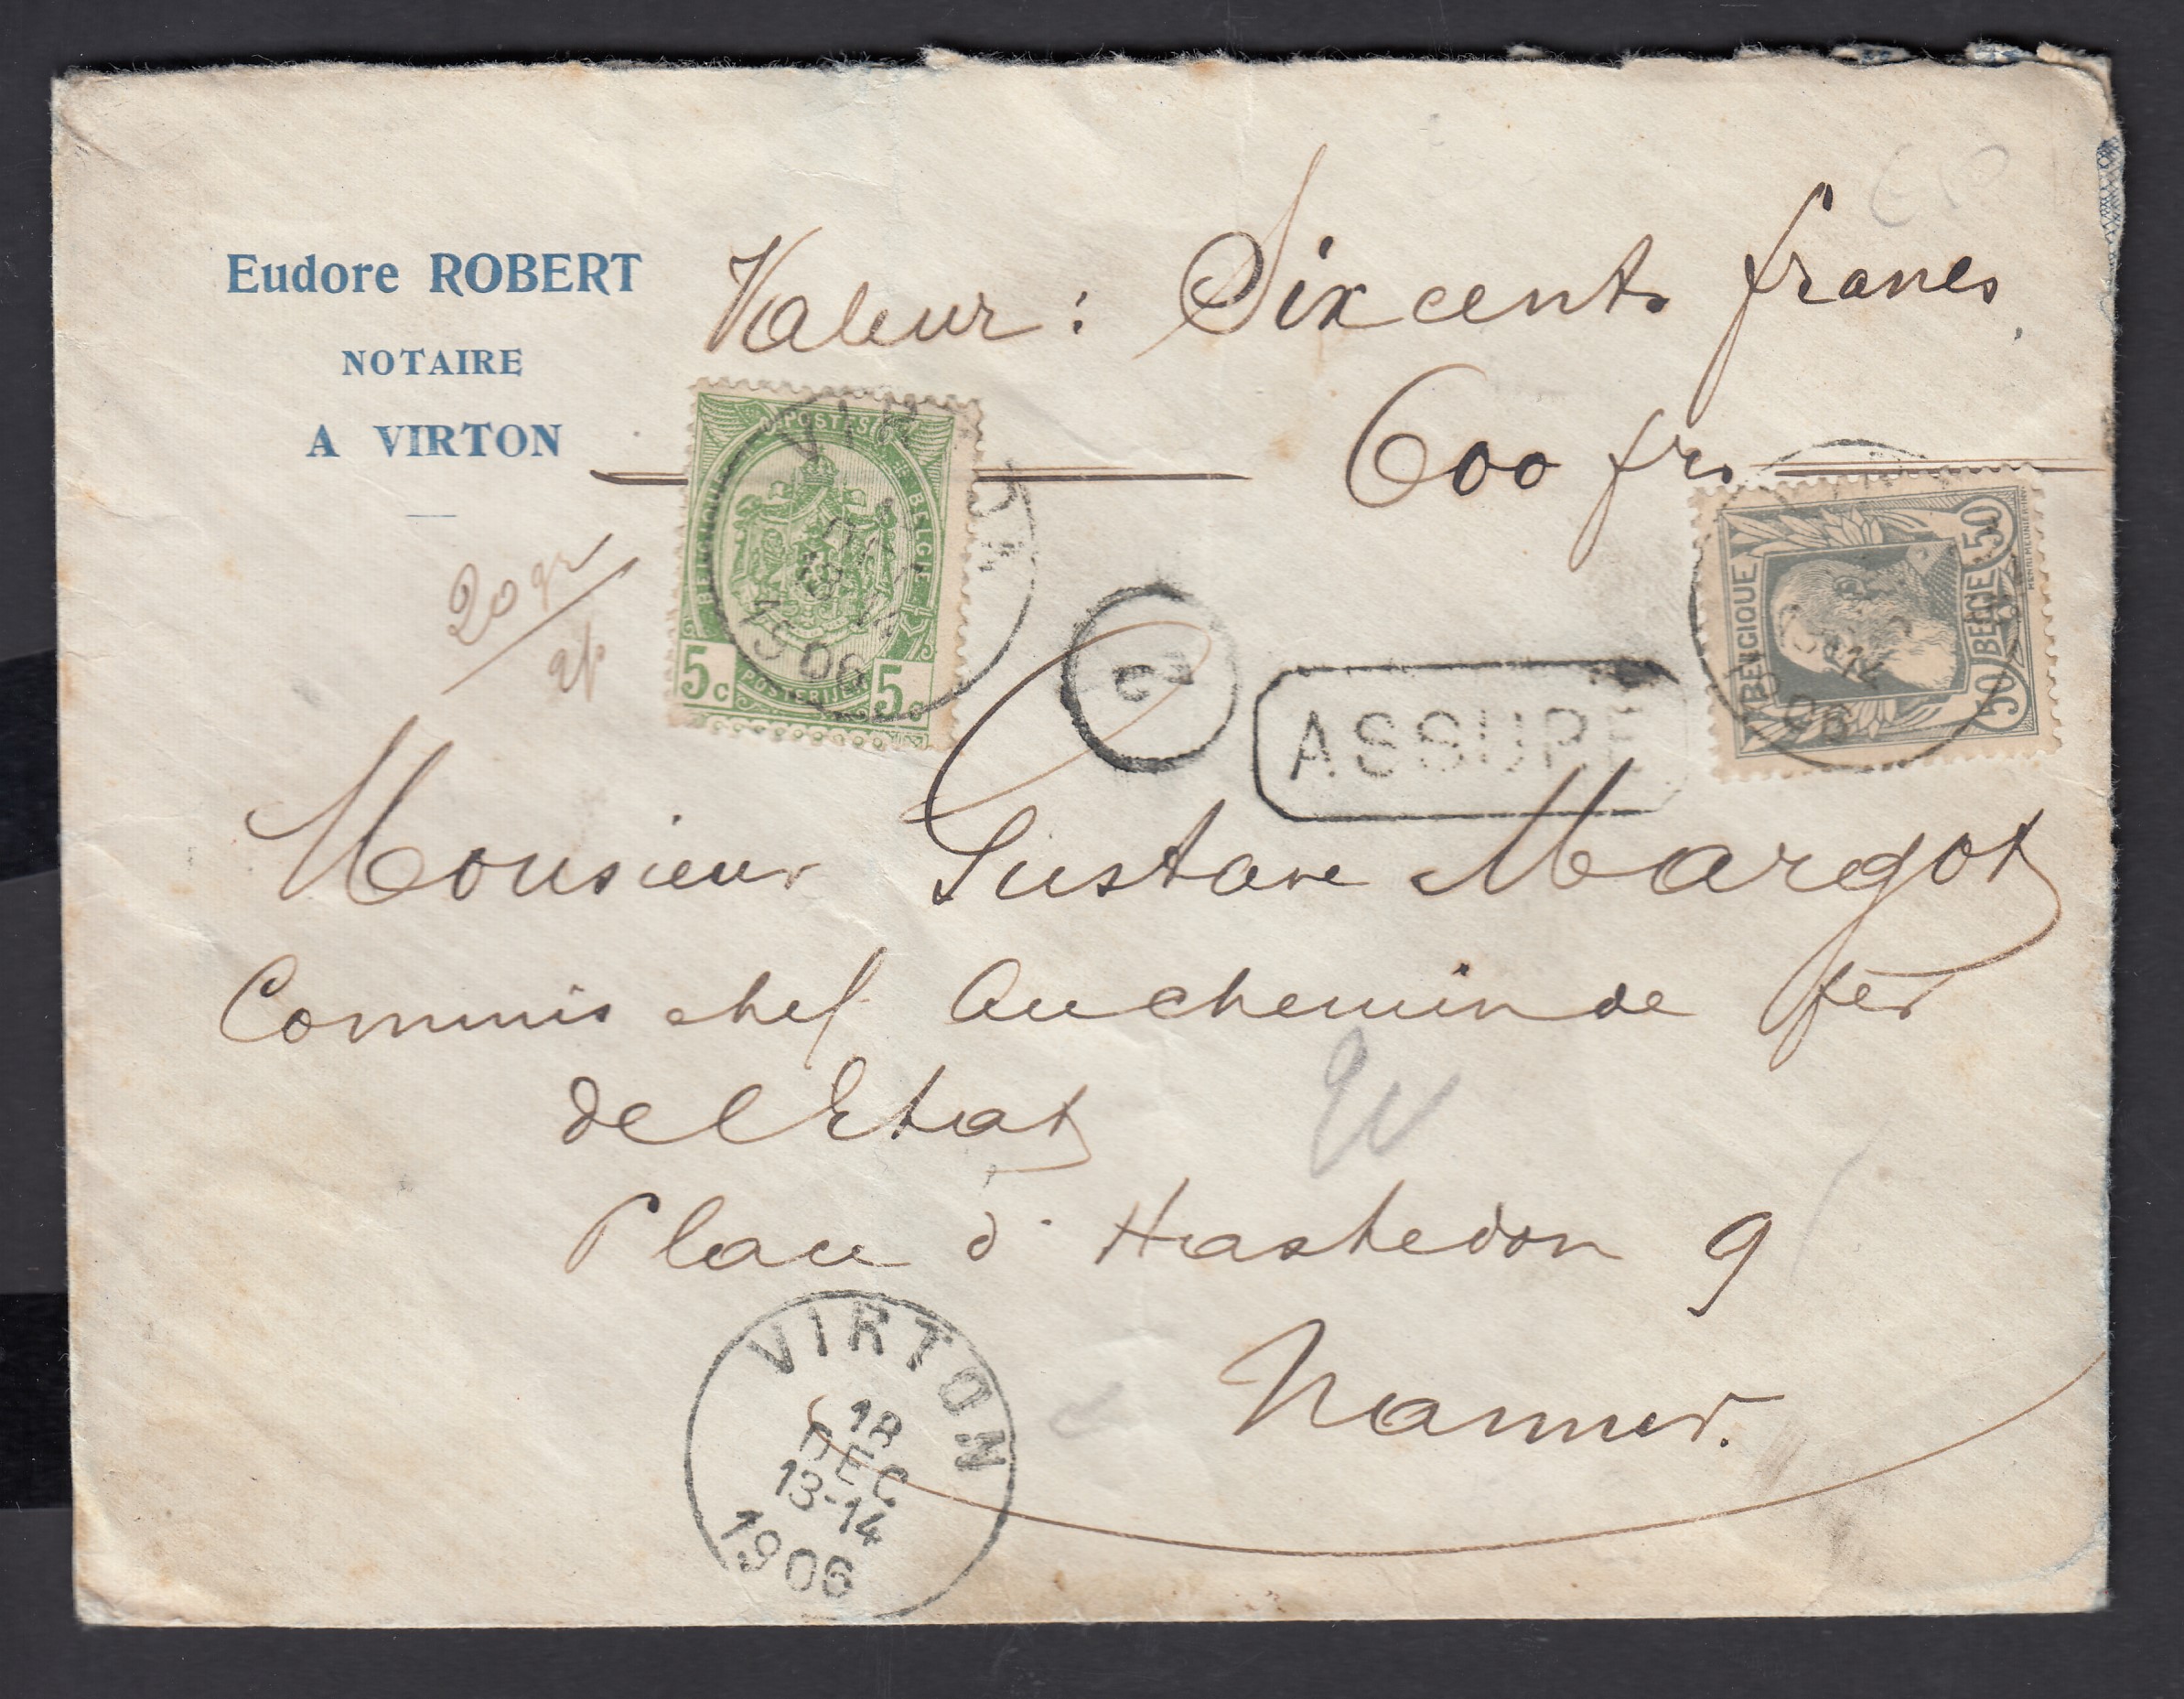 Eudore ROBERT
NOTAIRE
A VIRTON
Valeur : Six cents francs
600 frs
20 gr
POSTES
BELGIQUE BELGIE
5c POSTERIJEN 5c
VIRTON
18
1906
BELGIQUE 50
50 BELGIE
06
ASSURÉ
Monsieur Gustave Margot
Commis chef au chemin de fer
de l'Etat
Place d'Hastedon 9
Namur.
VIRTON
18
DEC
13-14
1906